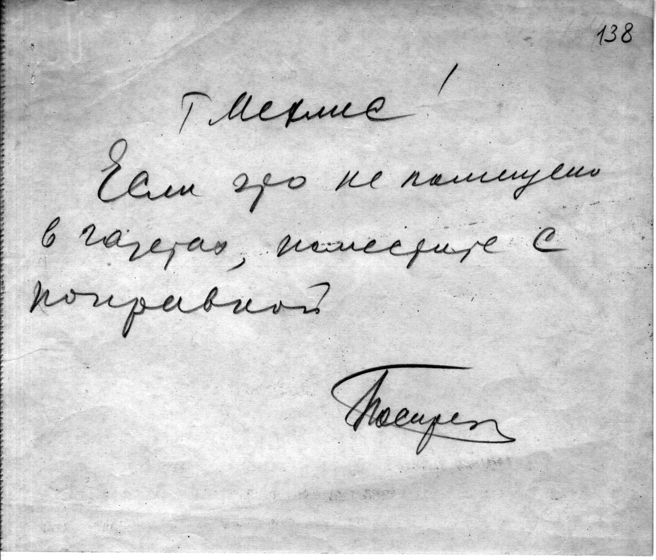 138
Т Мехлис!
Если это не помещено
в газетах, поместите с
поправкой